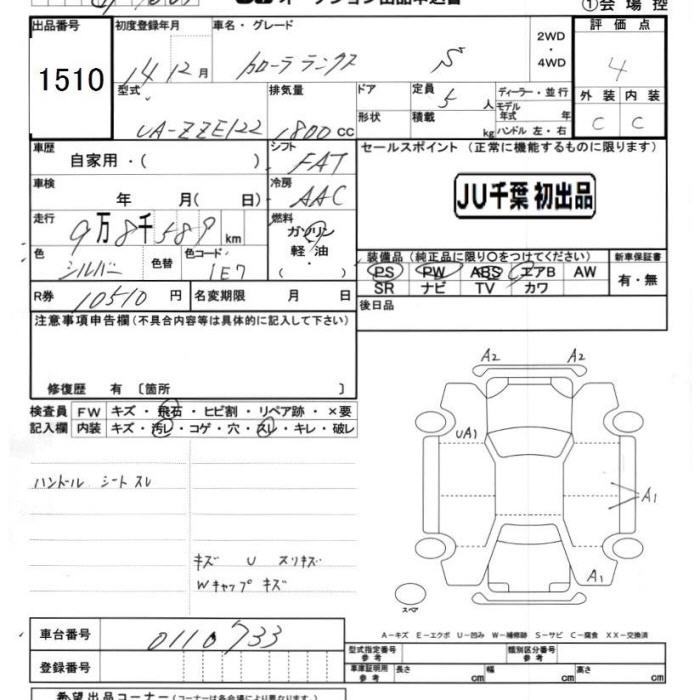 ①会場控
出品番号 初度登録年月 車名・グレード 2WD ・ 4WD 評価点
1510 14 12月 カローラランクス S 4
型式 排気量 ドア 定員 5 人 ディーラー・並行 外装 内装
形状 積載 kg モデル年式 年 C C
UA-ZZE122 1800 CC ハンドル 左・右
車歴 シフト セールスポイント (正常に機能するものに限ります)
自家用・( ) FAT
車検 冷房 JU千葉 初出品
年 月( 日) AAC
走行 燃料
9万8千589 km ガソリン
色 色替 色コード 軽油 装備品 (純正品に限り○をつけてください) 新車保証書
シルバー 1E7 ・( ) PS PW ABS エアB AW 有・無
SR ナビ TV カワ
R券 10510 円 名変期限 月 日 後日品
注意事項申告欄 (不具合内容等は具体的に記入して下さい)
修復歴 有 〔箇所 〕
検査員 FW キズ・飛石・ヒビ割・リペア跡・×要
記入欄 内装 キズ・汚レ・コゲ・穴・スレ・キレ・破レ
A2 A2
UA1
ハンドル シートスレ
A1
キズ U スリキズ
Wキャップ キズ
A1
スペア
A-キズ E-エクボ U-凹み W-補修跡 S-サビ C-腐食 XX-交換済
車台番号 0110733
型式指定番号 参考 類別区分番号 参考
登録番号 車庫証明用 参考 長さ cm 幅 cm 高さ cm
希望出品コーナー (コーナーは各会場により異なります。)